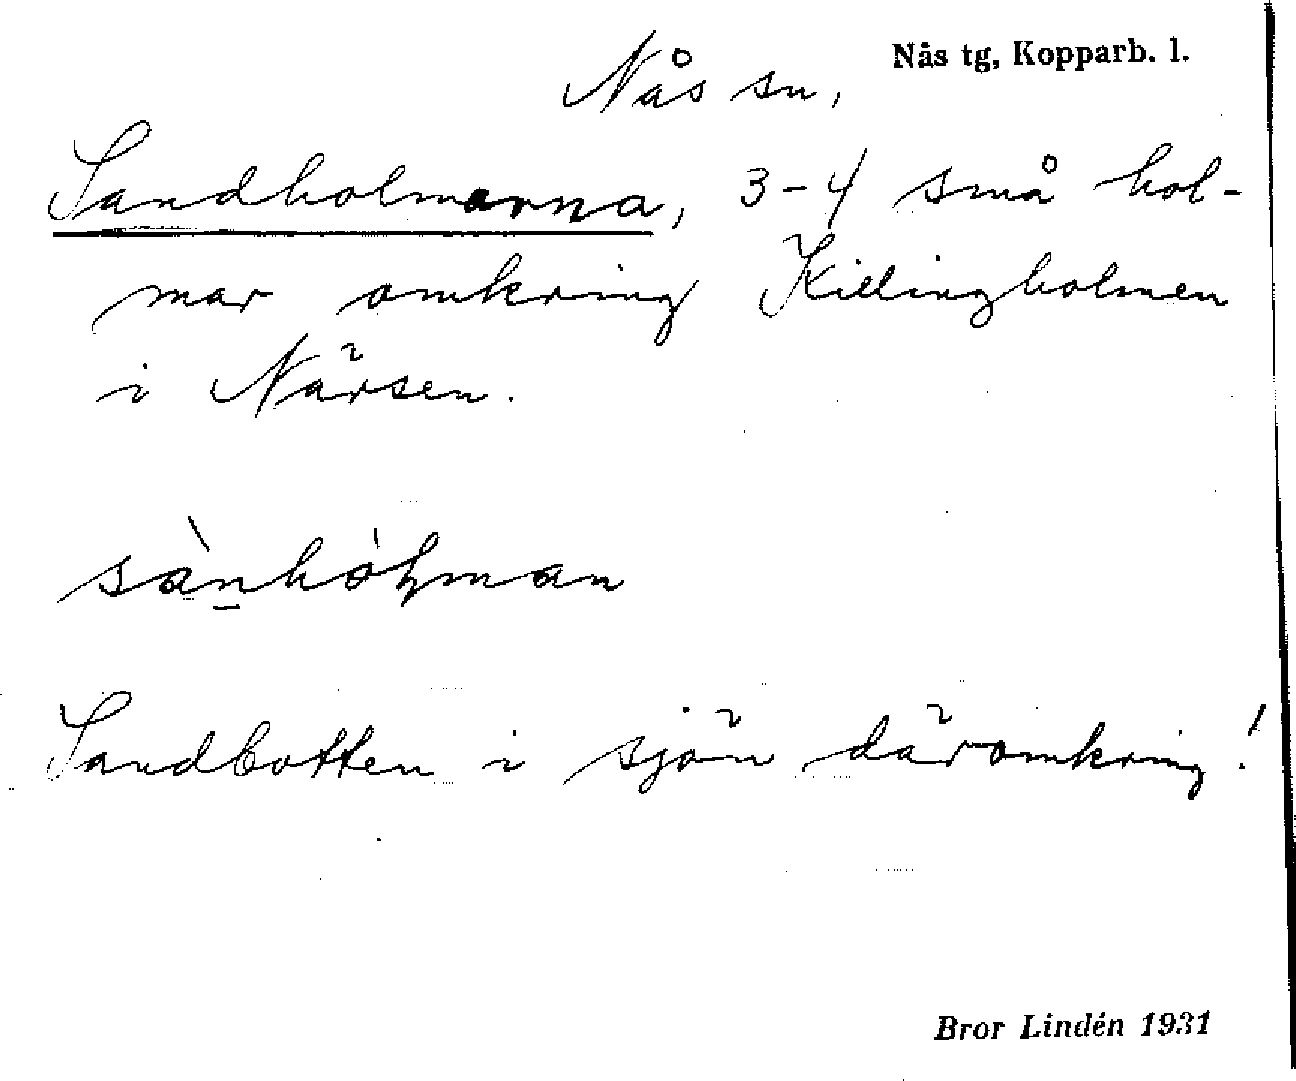 Nås tg, Kopparb. l.
Nås sn,
Sandholmarna, 3-4 små hol-
mar omkring Killingholmen
i Närsen.
Sandbotten i sjön däromkring!
Bror Lindén 1931